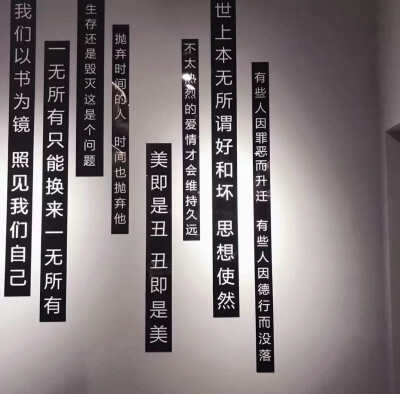 我们以书为镜 照见我们自己
一无所有只能换来一无所有
生存还是毁灭这是个问题
抛弃时间的人 时间也抛弃他
美即是丑 丑即是美
不太热烈的爱情才会维持久远
世上本无所谓好和坏 思想使然
有些人因罪恶而升迁 有些人因德行而没落